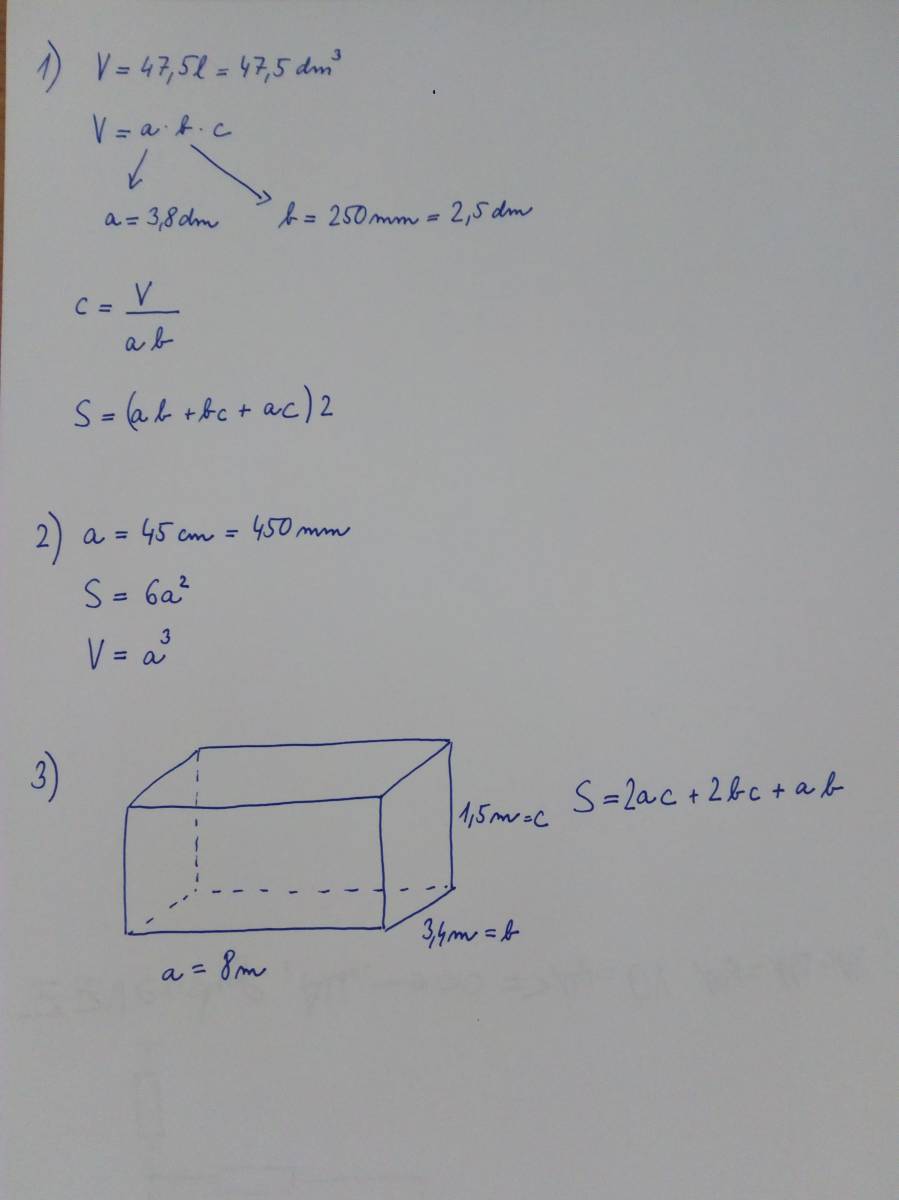 1) V = 47,5l = 47,5 dm³
V = a · b · c
a = 3,8dm b = 250mm = 2,5 dm
c = V / ab
S = (ab + bc + ac) 2
2) a = 45 cm = 450 mm
S = 6a²
V = a³
3)
1,5m = c S = 2ac + 2bc + ab
3,4m = b
a = 8m